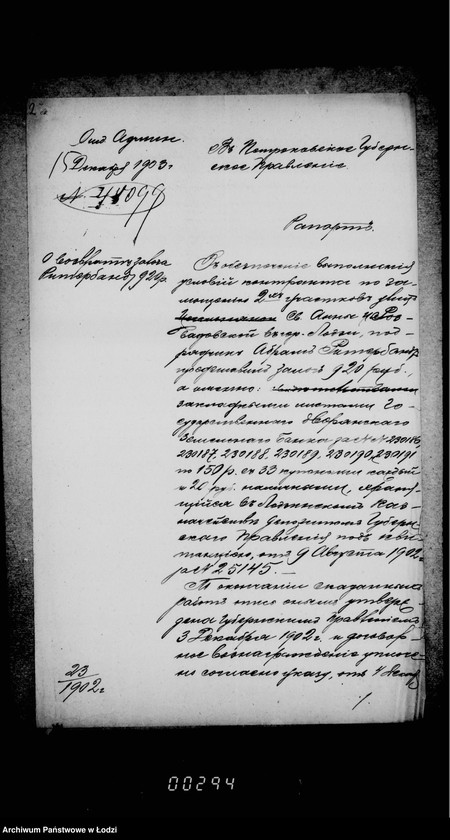 2
Отд. Админ.
15 Декабря 1903 г.
О возврате залога
Ритербанд 920 р.
Въ Петроковское Губерн-
ское Правленіе
Рапортъ.
Въ обезпеченіе выполненія
условій контракта по за-
мощенію 2хъ участковъ улицъ
Св. Анны и Ро-
вадовской въ гор. Лодзи, под-
рядчикъ Абрамъ Ритербандъ
представилъ залогъ 920 руб.,
а именно:
закладными листами Го-
сударственнаго Дворянскаго
Земельнаго Банка за №№ 230186,
230187, 230188, 230189, 230190, 230191
по 150 р. съ 33 купонами каждый
и 20 руб. наличными, храня-
щійся въ Лодзинскомъ Каз-
начействѣ депозитомъ Губерн-
скаго Правленія подъ кви-
танціею, отъ 9 Августа 1902 г.
за № 25145. —
По окончаніи сказанныхъ
работъ опись оныхъ утверж-
дена Губернскимъ Правленіемъ
3 Декабря 1902 г. и договор-
ное вознагражденіе уплаче-
но согласно указу, отъ 4 Декаб
23
1902 г
1.
00294
Archiwum Państwowe w Łodzi